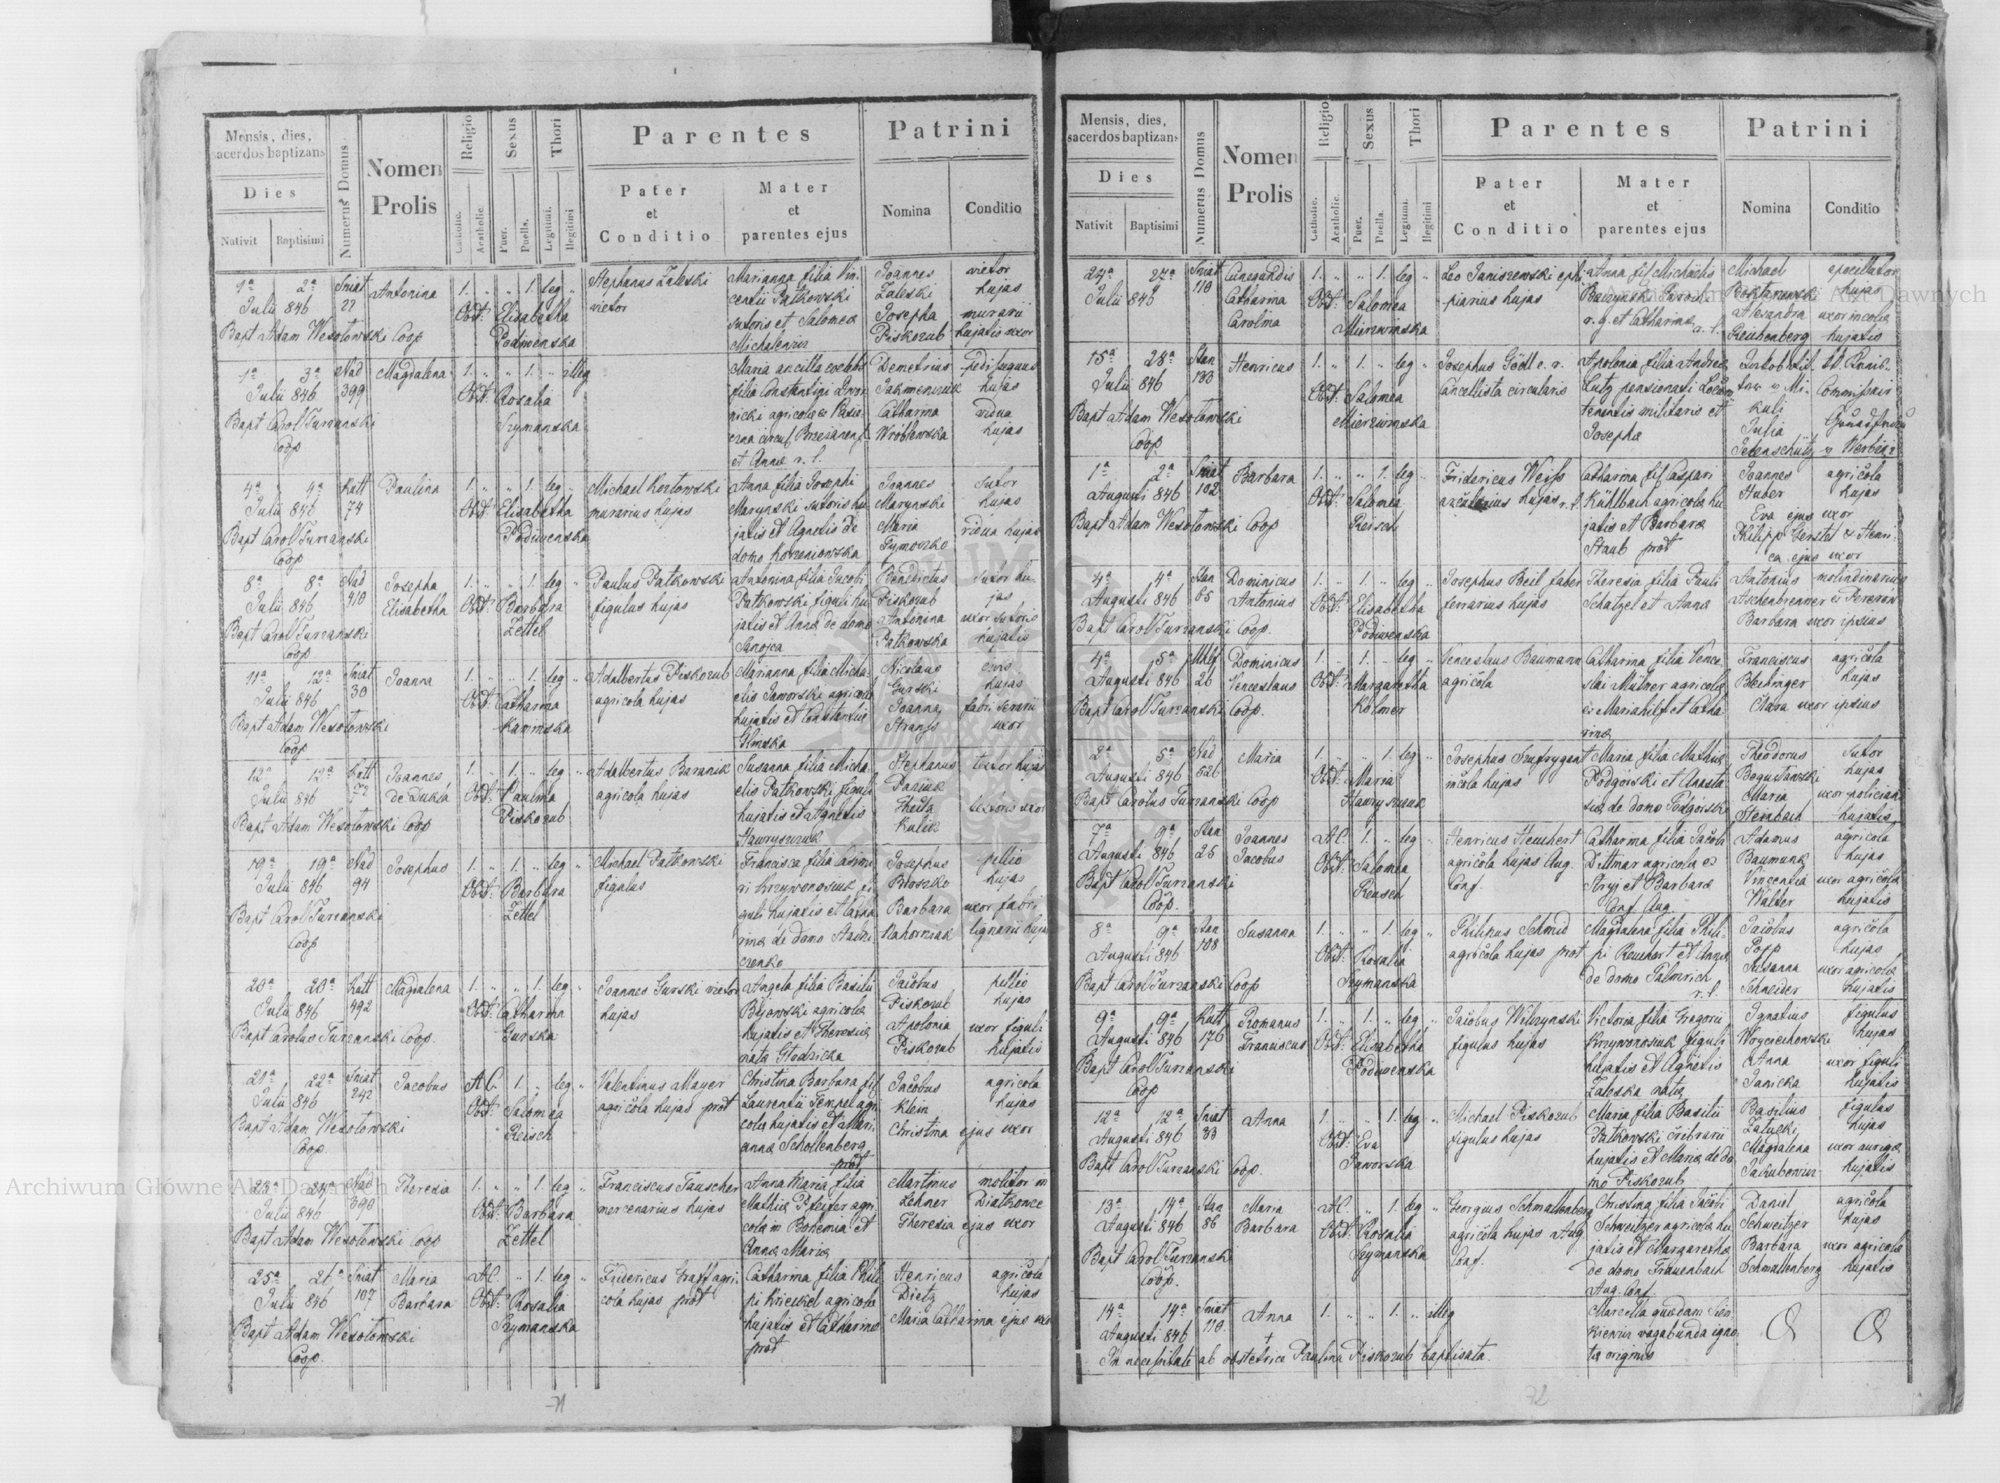 Mensis, dies,
sacerdos baptizans
Dies
Nativit
Baptisimi
Numerus Domus
Nomen
Prolis
Religio
Catholic.
Acatholic.
Sexus
Puer.
Puella.
Thori
Legitimi.
Illegitimi
Parentes
Pater
et
Conditio
Mater
et
parentes ejus
Patrini
Nomina
Conditio
1a 2a
Julii 846
22
Antonina
1. " " 1. leg "
Obst: Elisabetha
Podiwenska
Bapt Adam Wesołowski Coop
Stephanus Zaleski
vietor
Marianna filia Vin-
centii Patkowski
sutoris et Salomea
Joannes
Zaleski
Josepha
Piskozub
vietor
hujas
murarii
hujatis uxor
1a 3a
Julii 846
399
Magdalena
1. " " 1. " illeg
Obst: Rosalia
Szymanska
Bapt Carol Turzanski
Coop
Maria ancilla
filia Constantini
et Anna r. l.
Demetrius
Catharina
Wróblewska
hujas
vidua
hujas
4a 4a
Julii 846
74
Paulina
1. " " 1. leg "
Obst: Elisabetha
Podiwenska
Bapt Carol Turzanski
Coop
Michael Kozłowski
murarius hujas
Anna filia Josephi
Marynski sutoris hu
jatis et Agnetis de
domo Korzeniowska
Joannes
Marynski
Maria
Tymoszko
sutor
hujas
vidua hujas
8a 8a
Julii 846
410
Josepha
Elisabetha
1. " " 1. leg "
Obst: Barbara
Zettel
Bapt Carol Turzanski
Coop
Paulus Patkowski
figulus hujas
Antonina filia Jacobi
Patkowski figuli hu
jatis et Anna de domo
Sanojca
Benedictus
Piskozub
Antonina
Patkowska
sutor hu
jas
uxor sutoris
hujatis
11a 12a
Julii 846
30
Joanna
1. " " 1. leg "
Obst: Catharina
Kaminska
Bapt Adam Wesołowski
Coop
Adalbertus Piskozub
agricola hujas
Marianna filia Micha
elis Jaworski agricola
hujatis et Constantia
Glinska
Nicolaus
Gurski
Joanna
civis
hujas
uxor
12a 12a
Julii 846
72
Joannes
de Dukla
1. " 1. " leg "
Obst: Paulina
Piskozub
Bapt Adam Wesołowski Coop
Adalbertus Baranik
agricola hujas
Susanna filia Micha
elis Patkowski figuli
hujatis et Agnetis
Hawryszczuk
Stephanus
Thecla
Kulik
textor hujas
textoris uxor
19a 19a
Julii 846
94
Josephus
1. " 1. " leg "
Obst: Barbara
Zettel
Bapt Carol Turzanski
Coop
Michael Patkowski
figulus
Francisca filia Casimi
ri Krzywonosiuk fi
guli hujatis et Catha
rina de domo
Josephus
Broszko
Barbara
Nahorniak
pellio
hujas
uxor fabri
lignarii hujas
20a 20a
Julii 846
492
Magdalena
1. " " 1. leg "
Obst: Catharina
Gurska
Bapt Carolus Turzanski Coop.
Joannes Gurski vietor
hujas
Angela filia Basilii
Bijowski agricola
hujatis et Theresia
nata Głodzicka
Jacobus
Piskozub
Apolonia
Piskozub
pellio
hujas
uxor figuli
hujatis
21a 22a
Julii 846
242
Jacobus
A.C. 1. " leg "
Obst: Salomea
Reisch
Bapt Adam Wesołowski
Coop
Valentinus Mayer
agricola hujas prot
Christina Barbara fil
Laurentii Tempel agri
cola hujatis et Mari
anna Schollenberg
prot
Jacobus
Klein
Christina ejus uxor
agricola
hujas
23a 24a
Julii 846
390
Theresia
1. " " 1. leg "
Obst: Barbara
Zettel
Bapt Adam Wesołowski Coop
Franciscus Tauscher
mercenarius hujas
Anna Maria filia
Mathiæ Pfeifer agri
cola in Bohemia et
Anna Maria
Martinus
Lehner
Theresia ejus uxor
molitor in
Diatkowce
25a 26a
Julii 846
107
Maria
Barbara
A.C. " 1. leg "
Obst: Rosalia
Szymanska
Bapt Adam Wesołowski
Coop.
Fridericus Graff agri
cola hujas prot
Catharina filia Phili
pi Kriechel agricola
hujatis et Catharina
prot
Henricus
Dietz
Maria Catharina ejus uxor
agricola
hujas
71
Mensis, dies,
sacerdos baptizans
Dies
Nativit
Baptisimi
Numerus Domus
Nomen
Prolis
Religio
Catholic.
Acatholic.
Sexus
Puer.
Puella.
Thori
Legitimi.
Illegitimi
Parentes
Pater
et
Conditio
Mater
et
parentes ejus
Patrini
Nomina
Conditio
24a 27a
Julii 846
110
Cunegundis
Catharina
Carolina
1. " " 1. leg "
Obst: Salomea
Mierzwinska
Leo Janiszewski ephi
piarius hujas
Anna fil Michaelis
r. g. et Catharina r. l.
Michael
Alexandra
Reichenberg
hujas
uxor incola
hujatis
15a 28a
Julii 846
133
Henricus
1. " 1. " leg "
Obst: Salomea
Mierzwinska
Bapt Adam Wesołowski
Coop
Josephus Gödl c. r.
Cancellista circularis
Apolonia filia Andrea
Lutz pensionati Locum
tenentis militaris et
Josepha
Julia
1a 2a
Augusti 846
102
Barbara
1. " " 1. leg "
Obst: Salomea
Reisch
Bapt Adam Wesołowski Coop
Fridericus Weiss
hujas r. l.
Catharina fil Caspari
Kühlbach agricola hu
jatis et Barbara
Staub prot
Joannes
Huber
Eva ejus uxor
Philipp Gerstel et Henri
ca ejus uxor
agricola
hujas
4a 4a
Augusti 846
65
Dominicus
Antonius
1. " 1. " leg "
Obst: Elisabetha
Podiwenska
Bapt Carol Turzanski Coop.
Josephus Beil faber
ferrarius hujas
Theresia filia Pauli
Schatzel et Anna
Antonius
Aschenbrenner
Barbara uxor ipsius
molindinarius
4a 5a
Augusti 846
26
Dominicus
Venceslaus
1. " 1. " leg "
Obst: Margaretha
Kolmer
Bapt Carol Turzanski Coop.
Venceslaus Baumann
agricola
Catharina filia Vence
slai Mülner agricola
ex Mariahilf et Catha
rina
Franciscus
Clara uxor ipsius
agricola
hujas
2a 5a
Augusti 846
526
Maria
1. " " 1. leg "
Obst: Maria
Hawryszczuk
Bapt Carolus Turzanski Coop
Josephus
incola hujas
Maria filia Mathiæ
Podgorski et Anasta
sia de domo Podgorski
Theodorus
Bogusławski
Maria
Steinbach
sutor
hujas
hujatis
7a 9a
Augusti 846
25
Joannes
Jacobus
A.C. 1. " leg "
Obst: Salomea
Reusch
Bapt Carol Turzanski
Coop.
Henricus Heuchert
agricola hujas Aug.
Conf.
Catharina filia Jacobi
Dittmar agricola ex
Stryj et Barbara
Conf Aug.
Adamus
Baumunk
Vincentia
Walter
agricola
hujas
uxor agricola
hujatis
8a 9a
Augusti 846
108
Susanna
1. " " 1. leg "
Obst: Rosalia
Szymanska
Bapt Carol Turzanski Coop
Philipus Schmid
agricola hujas prot
Magdalena filia Phili
pi Reuchert et Anna
de domo
r. l.
Jacobus
Popp
Susanna
Schneider
agricola
hujas
uxor agricola
hujatis
9a 9a
Augusti 846
176
Romanus
Franciscus
1. " 1. " leg "
Obst: Elisabetha
Podiwenska
Bapt Carol Turzanski
Coop
Jacobus Wilczynski
figulus hujas
Victoria filia Gregorii
Krzywonosiuk figuli
hujatis et Agnetis
Zaleska nata
Ignatius
Woyciechowski
Anna
Janicka
figulus
hujas
uxor figuli
hujatis
12a 12a
Augusti 846
33
Anna
1. " " 1. leg "
Obst: Eva
Jaworska
Bapt Carol Turzanski Coop.
Michael Piskozub
figulus hujas
Maria filia Basilii
Patkowski cribrarii
hujatis et Maria de do
mo Piskozub
Basilius
Załucki
Magdalena
figulus
hujas
uxor auriga
hujatis
13a 14a
Augusti 846
86
Maria
Barbara
A.C. " 1. leg "
Obst: Rosalia
Szymanska
Bapt Carol Turzanski
Coop.
Georgius Schmallenberg
agricola hujas Aug
Conf.
Christina filia Jacobi
Schweitzer agricola hu
jatis et Margaretha
de domo Frauenbach
Aug. Conf.
Daniel
Schweitzer
Barbara
Schmallenberg
agricola
hujas
uxor agricola
hujatis
14a 14a
Augusti 846
110.
Anna
1. " " 1. " illeg
In necessitate ab obstetrice Paulina Piskozub baptisata.
Marcella quædam
vagabunda igno
tæ originis
72
Archiwum Główne Akt Dawnych
Archiwum Główne Akt Dawnych